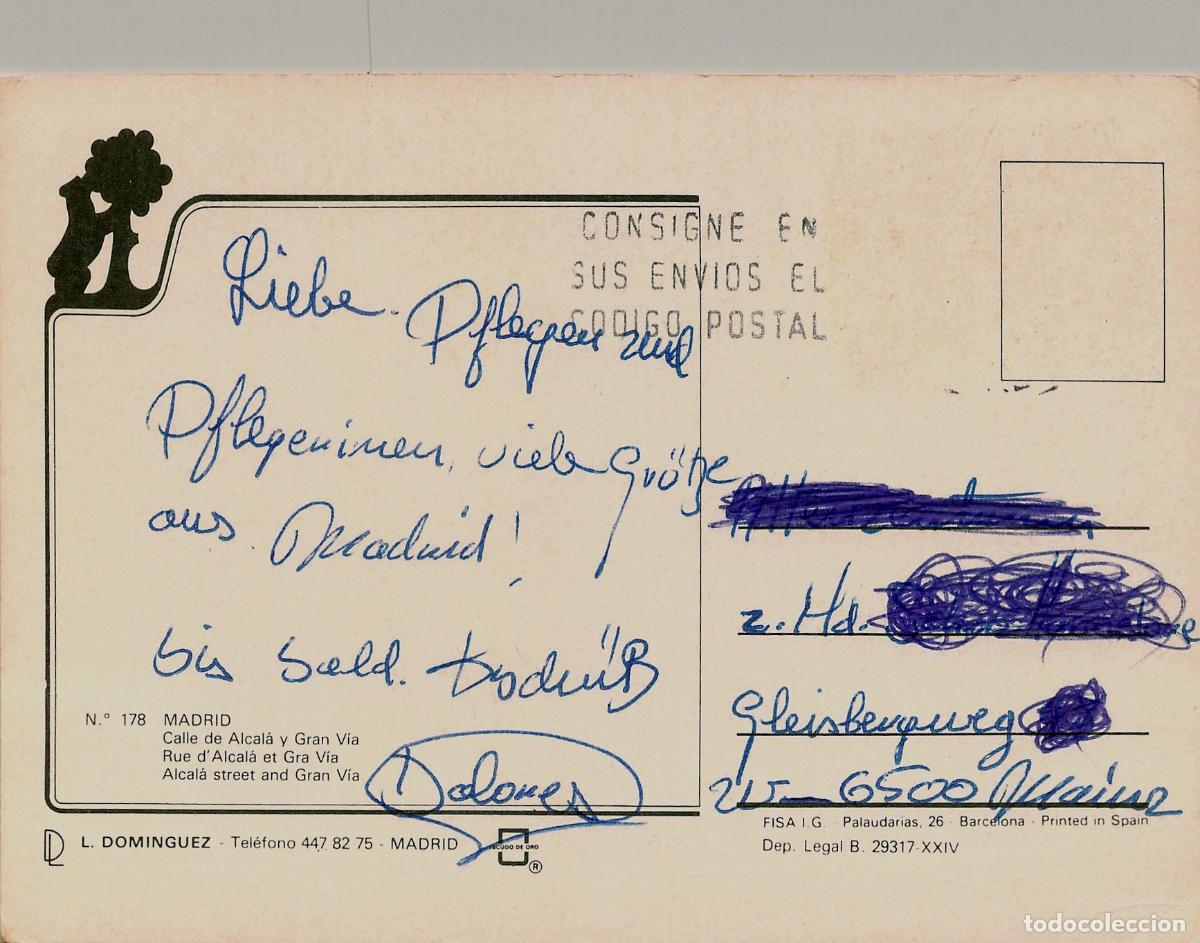 CONSIGNE EN
SUS ENVIOS EL
CODIGO POSTAL
Liebe Pflegen und
Pflegerinnen, viele Grüße
aus Madrid!
bis bald.
Dolores
z. Hd.
Gleisbergweg
6500 Mainz
N.° 178 MADRID
Calle de Alcalá y Gran Vía
Rue d'Alcalá et Gra Vía
Alcalá street and Gran Vía
L. DOMINGUEZ - Teléfono 447 82 75 - MADRID
ESCUDO DE ORO
®
FISA I.G. Palaudarias, 26 Barcelona - Printed in Spain
Dep. Legal B. 29317-XXIV
todocoleccion